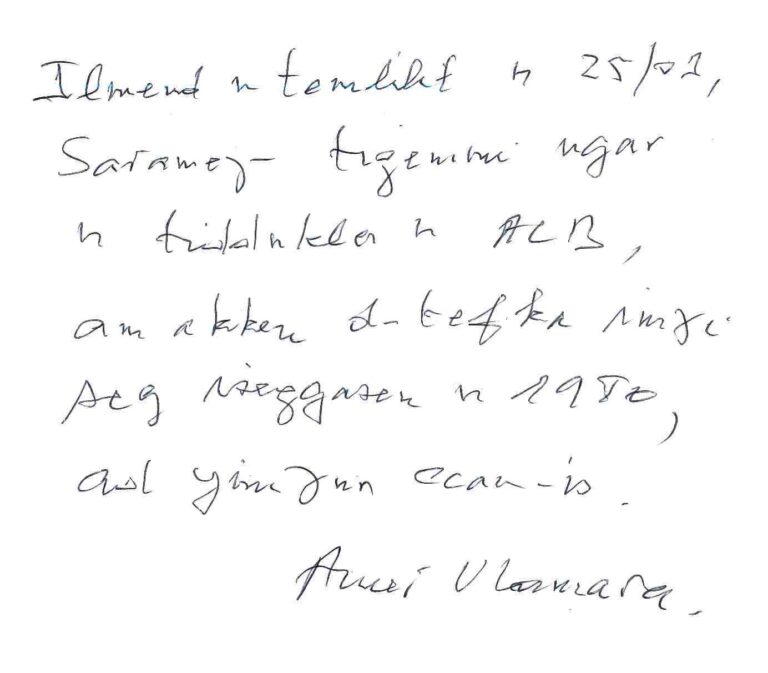 Ilmend n temlilit n 25/01,
Sarameɣ- tigemmi ugar
n tiddukla n ACB,
am akken d-tefka imɣi
seg iseggasen n 1980,
ad yimɣur ccan-is.
Ameɣ Ulamara.